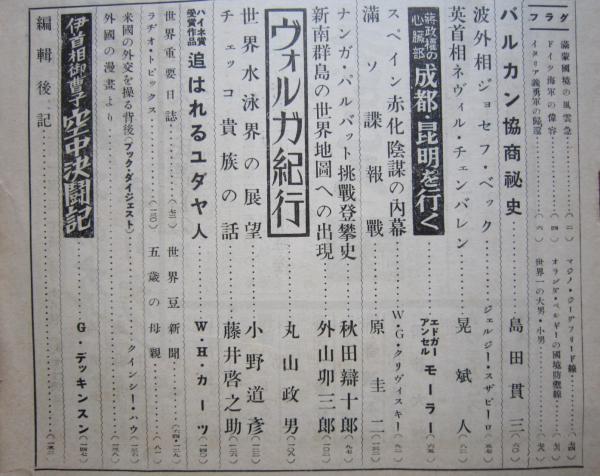 グラフ
滿蒙國境の風雲急……(二)
ドイツ海軍の偉容……(四)
イタリア義勇軍の歸還……(六)
マジノ・ジーグフリード線……(七四)
オランダ・ベルギーの國境防壘線……(七六)
世界一の大男・小男……(七八)
バルカン協商祕史……島田貫三
波外相ジョセフ・ベック……ジェルジー・スザピーロ
英首相ネヴィル・チェンバレン……晃斌人
蔣政權の心臟部 成都・昆明を行く……エドガー・アンセル モーラー
スペイン赤化陰謀の內幕……W・G・クリヴィスキー
滿ソ諜報戰……原圭二
ナンガ・パルバット挑戰登攀史……秋田辯十郎
新南群島の世界地圖への出現……外山卯三郎
ヴォルガ紀行……丸山政男
世界水泳界の展望……小野道彥
チェッコ貴族の話……藤井啓之助
ハイネ賞受賞作品 追はれるユダヤ人……W・H・カーツ
世界重要日誌……
世界豆新聞……
ラヂオ・トピックス……
五歲の母親……
米國の外交を操る背後(ブック・ダイジェスト)……クインシー・ハウ
外國の漫畫より……
伊首相御曹子 空中決鬪記……G・デッキンスン
編輯後記……